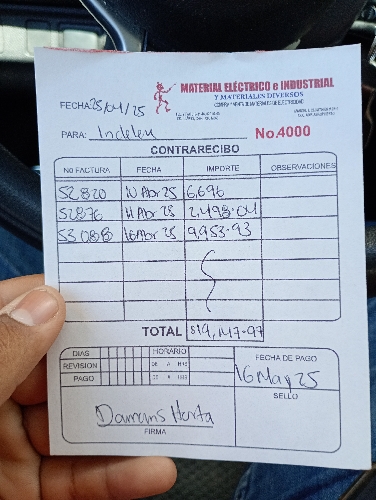 MATERIAL ELÉCTRICO e INDUSTRIAL
Y MATERIALES DIVERSOS
FECHA: 25/04/25
PARA: Indelek
No.4000
CONTRARECIBO
No FACTURA FECHA IMPORTE OBSERVACIONES
52820 10 Abr 25 6,696
52876 11 Abr 25 2,498.04
53088 16 Abr 25 9,953.93
TOTAL $19,147.97
DIAS HORARIO
REVISION DE A HRS
PAGO DE A HRS
FECHA DE PAGO
16 May 25
SELLO
Horta
FIRMA